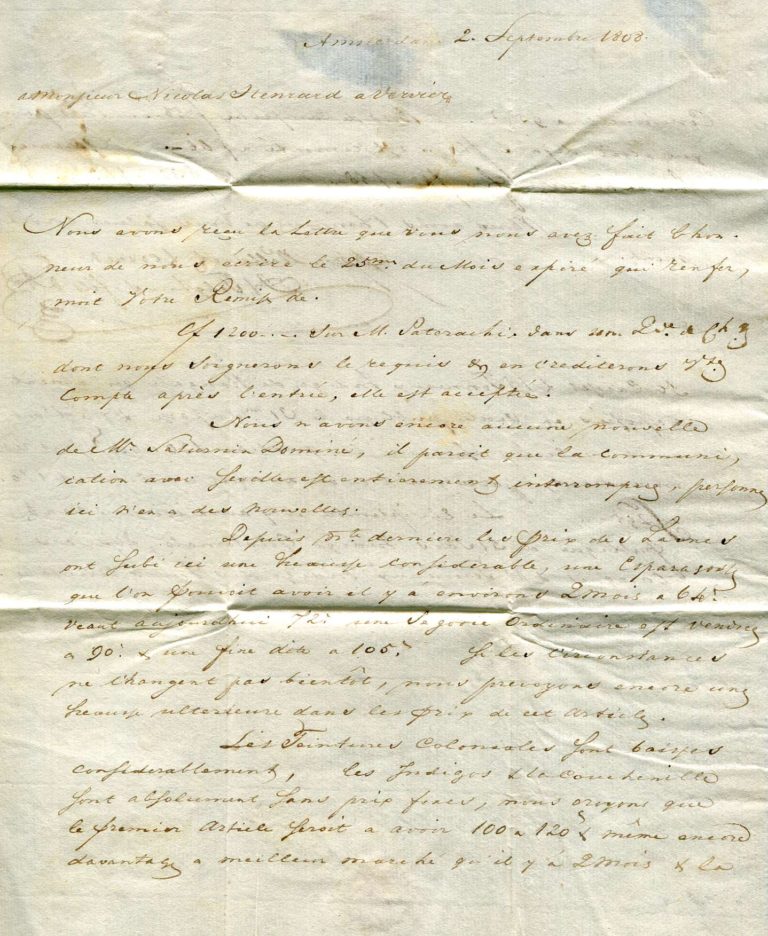 Amsterdam 2. Septembre 1808.
a Monsieur Nicolas Stenard a Vervier
Nous avons reçu la Lettre que vous nous avez fait l'hon-
neur de nous écrire le 25me du Mois expiré qui renfer,
moit Votre Remise de.
Cf 1200.-.- Sur M. Paterachi. dans son
dont nous soignerons le requis & en crediterons
Compte après l'entrée, elle est acceptée.
Nous n'avons encore aucune nouvelle
de Mr. Saturnin Dominé, il paroit que la Communi,
cation avec Seville est entierement interrompue, personne
ici n'en a des nouvelles.
Depuis nre. derniere les prix des Laines
ont subi ici une hausse Considérable, une
que l'on pouvoit avoir il y a environs 2 mois a 64s.
veaut aujourdhui 72s. une Segovie Ordinaire est vendue
a 90s. & une fine dite a 105s. Si les Circonstances
ne changent pas bientôt, nous prevoyons encore une
hausse ulterieure dans les prix de cet Article.
Les Teintures Coloniales sont baissés
considerablement, les Indigos & la Couchenille
sont absolument sans prix fixes, nous croyons que
le premier Article seroit a avoir 100 a 120s & même encore
davantage a meilleur marché qu'il y a 2 Mois & la